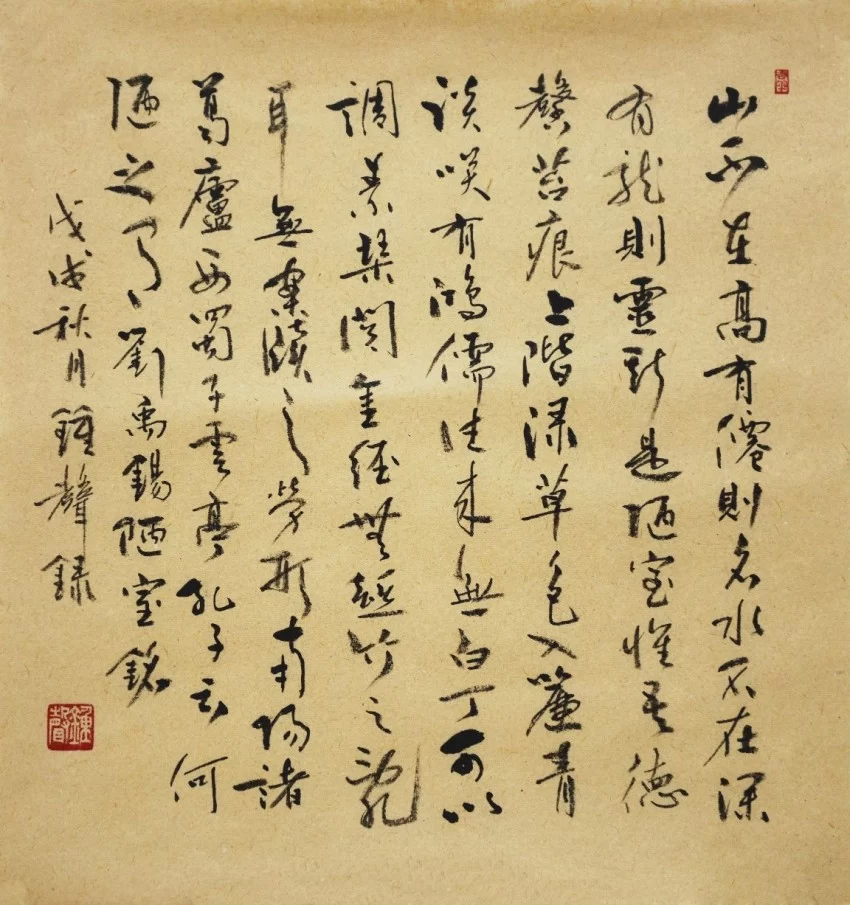 山不在高有僊則名水不在深
有龍則靈斯是陋室惟吾德
馨苔痕上階綠草色入簾青
談咲有鴻儒往來無白丁可以
調素琴閱金經無絲竹之亂
耳無案牘之勞形南陽諸
葛廬西蜀子雲亭孔子云何
陋之有劉禹錫陋室銘
戊戌秋月鍾聲錄
鍾聲